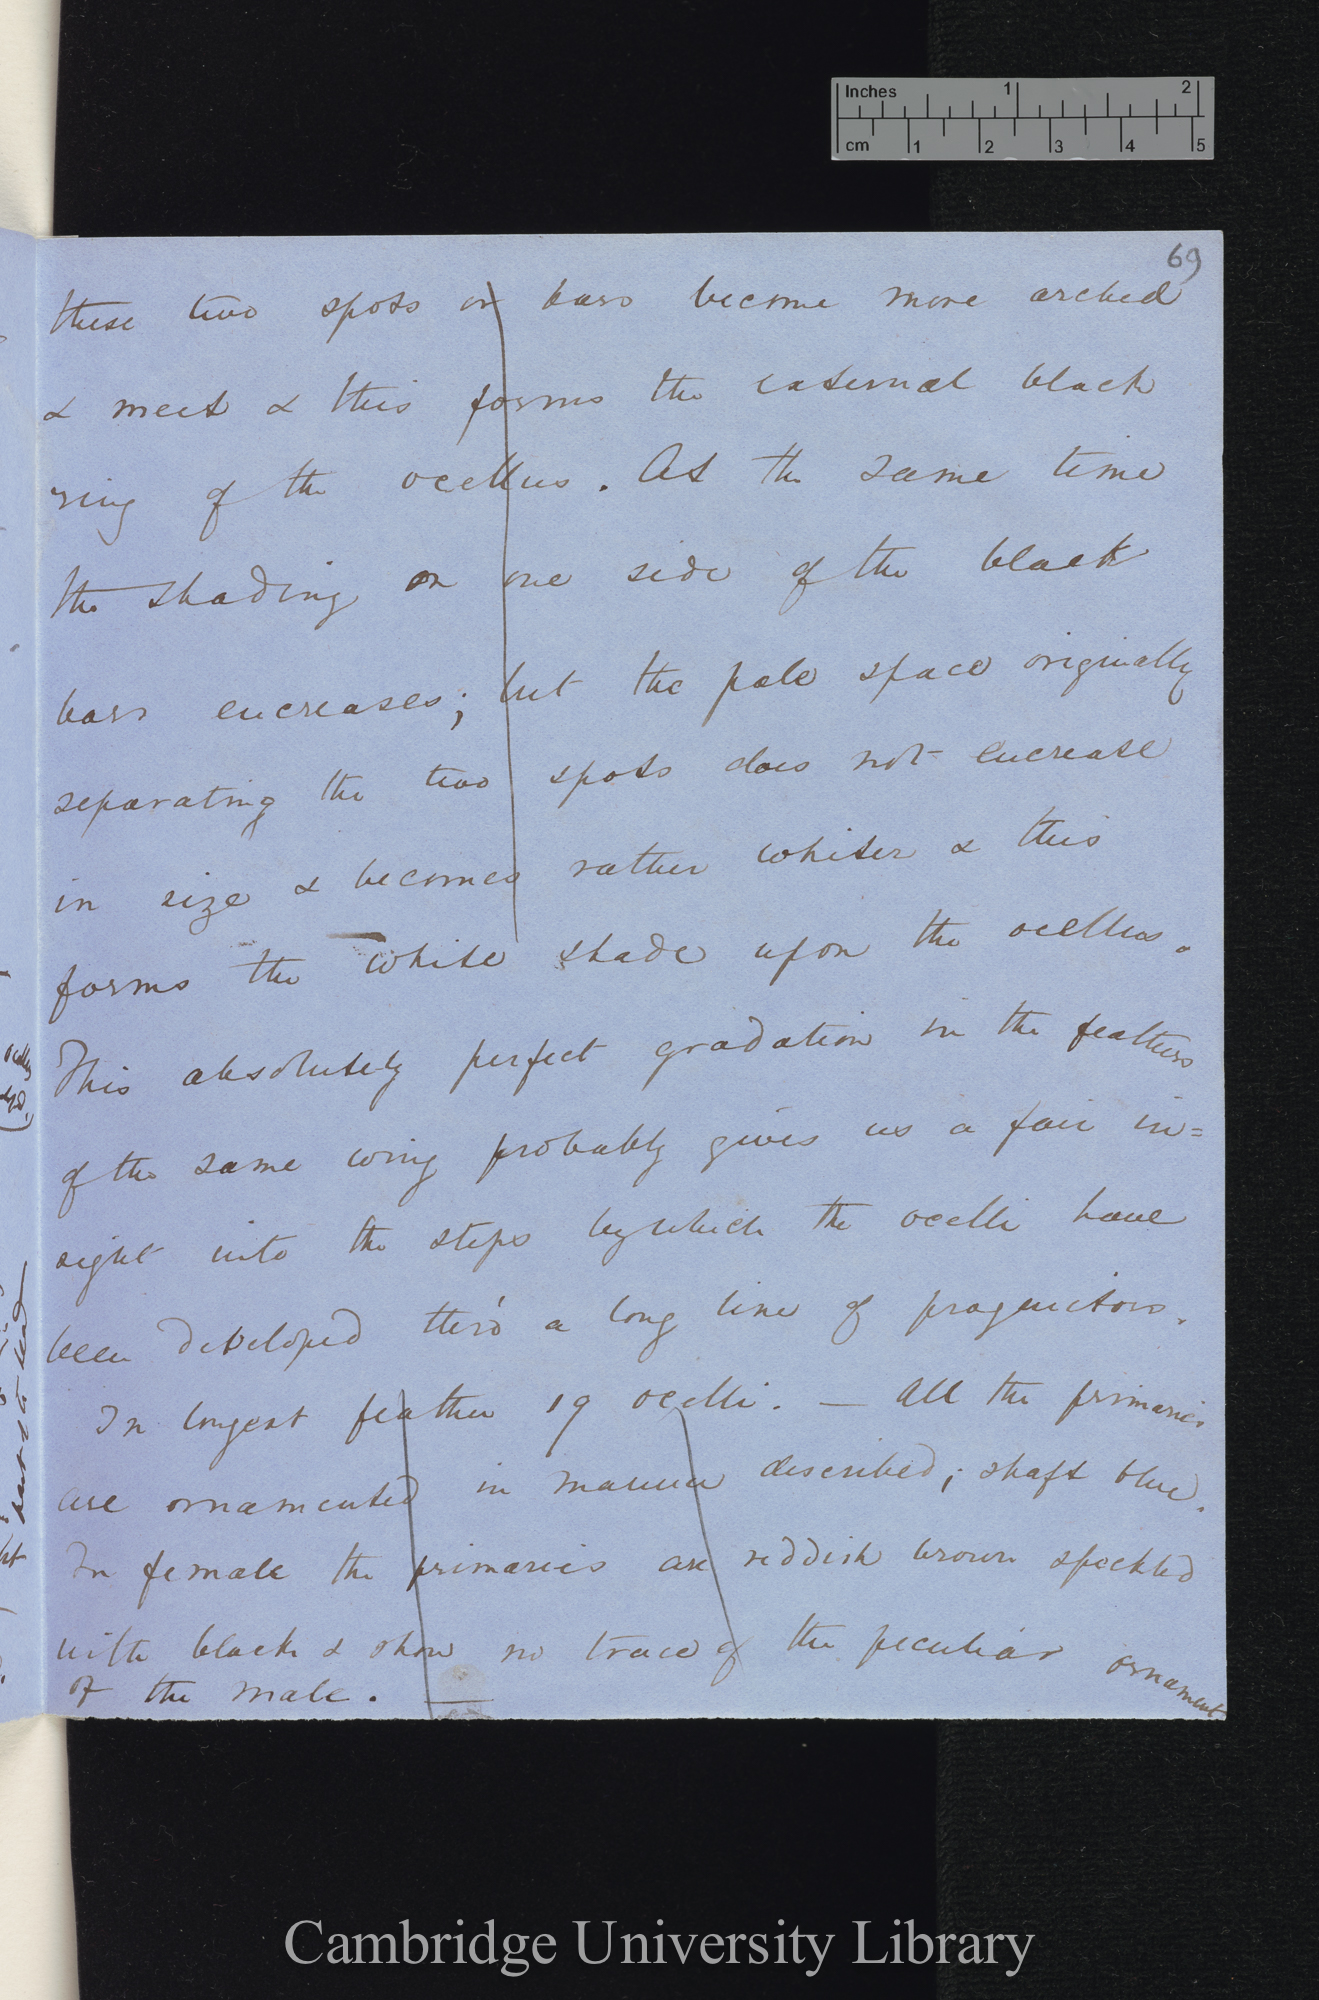 Inches 1 2
cm 1 2 3 4 5
69
these two spots or bars become more arched
& meet & this forms the external black
ring of the ocellus. At the same time
the shading on one side of the black
bars encreases; but the pale space originally
separating the two spots does not encrease
in size & becomes rather whiter & this
forms the white shade upon the ocellus.
This absolutely perfect gradation in the feathers
of the same wing probably gives us a fair in=
sight into the steps by which the ocelli have
been developed thro' a long line of progenitors.
In longest feather 19 ocelli. — All the primaries
are ornamented in manner described; shaft blue.
In female the primaries are reddish brown speckled
with black & show no trace of the peculiar ornament
of the male. —
Cambridge University Library